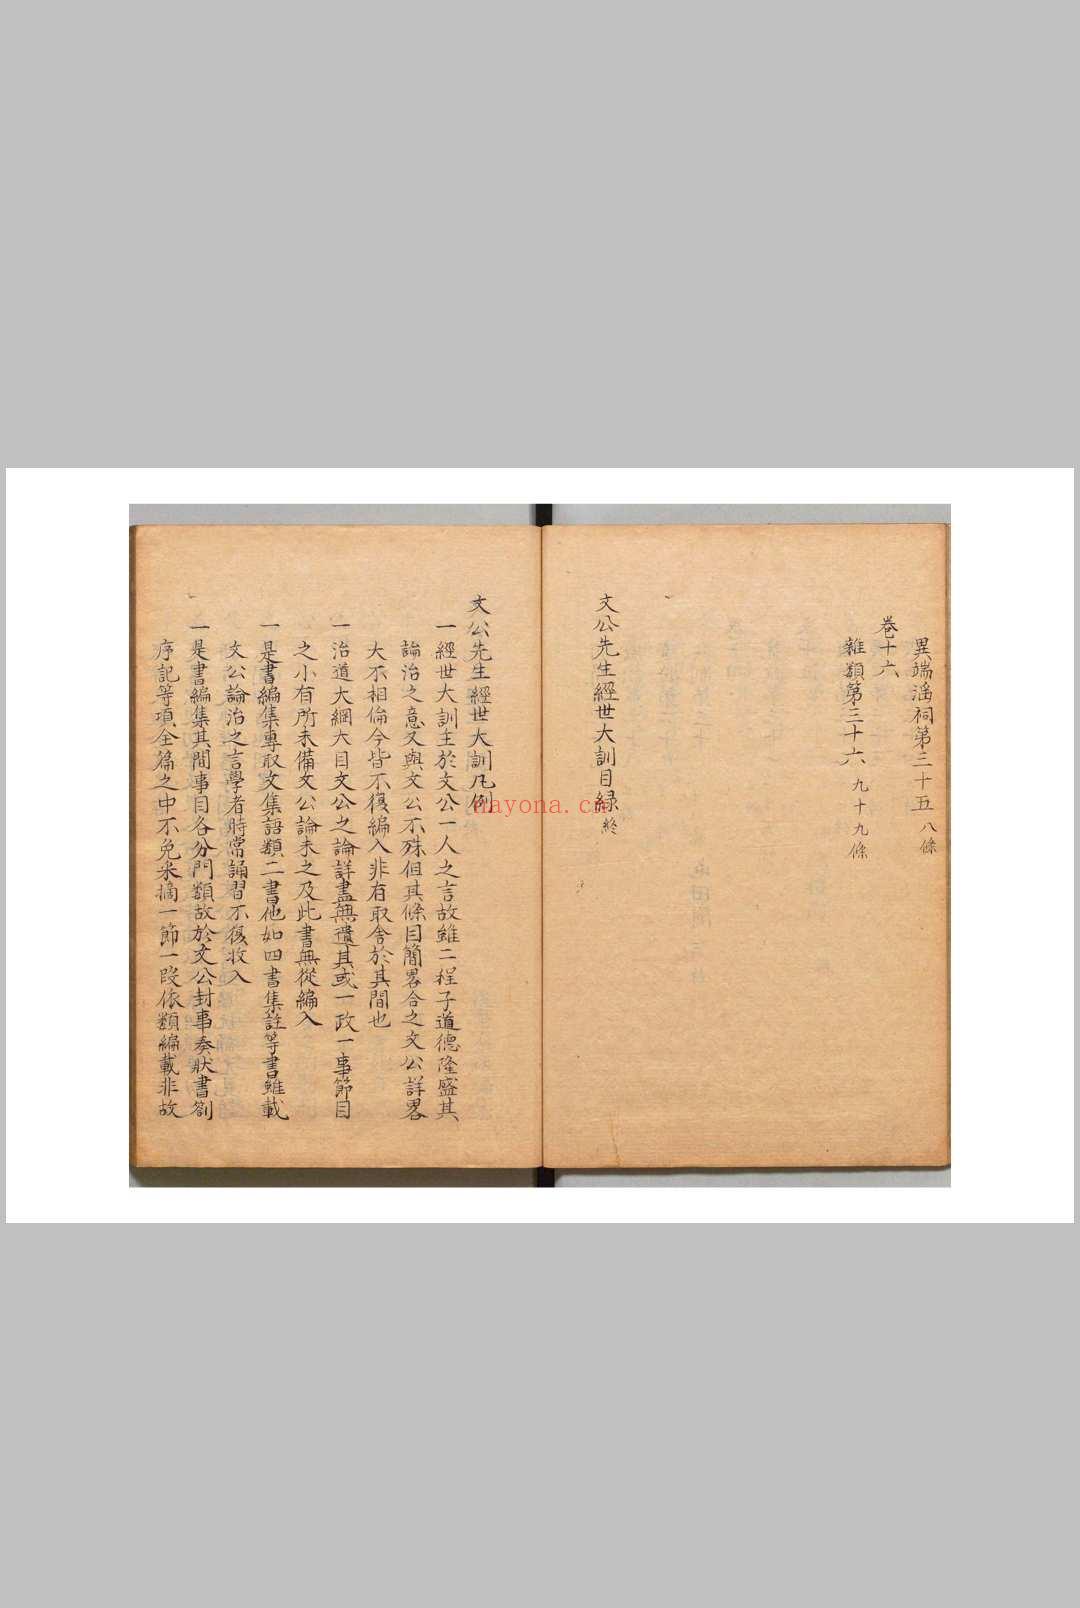 異端滛祠第三十五 八條
卷十六
雜類第三十六 九十九條
文公先生經世大訓目録 終
文公先生經世大訓凡例
一經世大訓主於文公一人之言故雖二程子道德隆盛其
論治之意又與文公不殊但其條目簡畧合之文公詳畧
大不相倫今皆不復編入非有取舍於其間也
一治道大綱大目文公之論詳盡無遺其或一政一事節目
之小有所未備文公論未之及此書無從編入
一是書編集專取文集語類二書他如四書集註等書雖載
文公論治之言學者時常誦習不復收入
一是書編集其間事目各分門類故於文公封事奏狀書劄
序記等項全篇之中不免采摘一節一段依類編載非故
nayona.cn